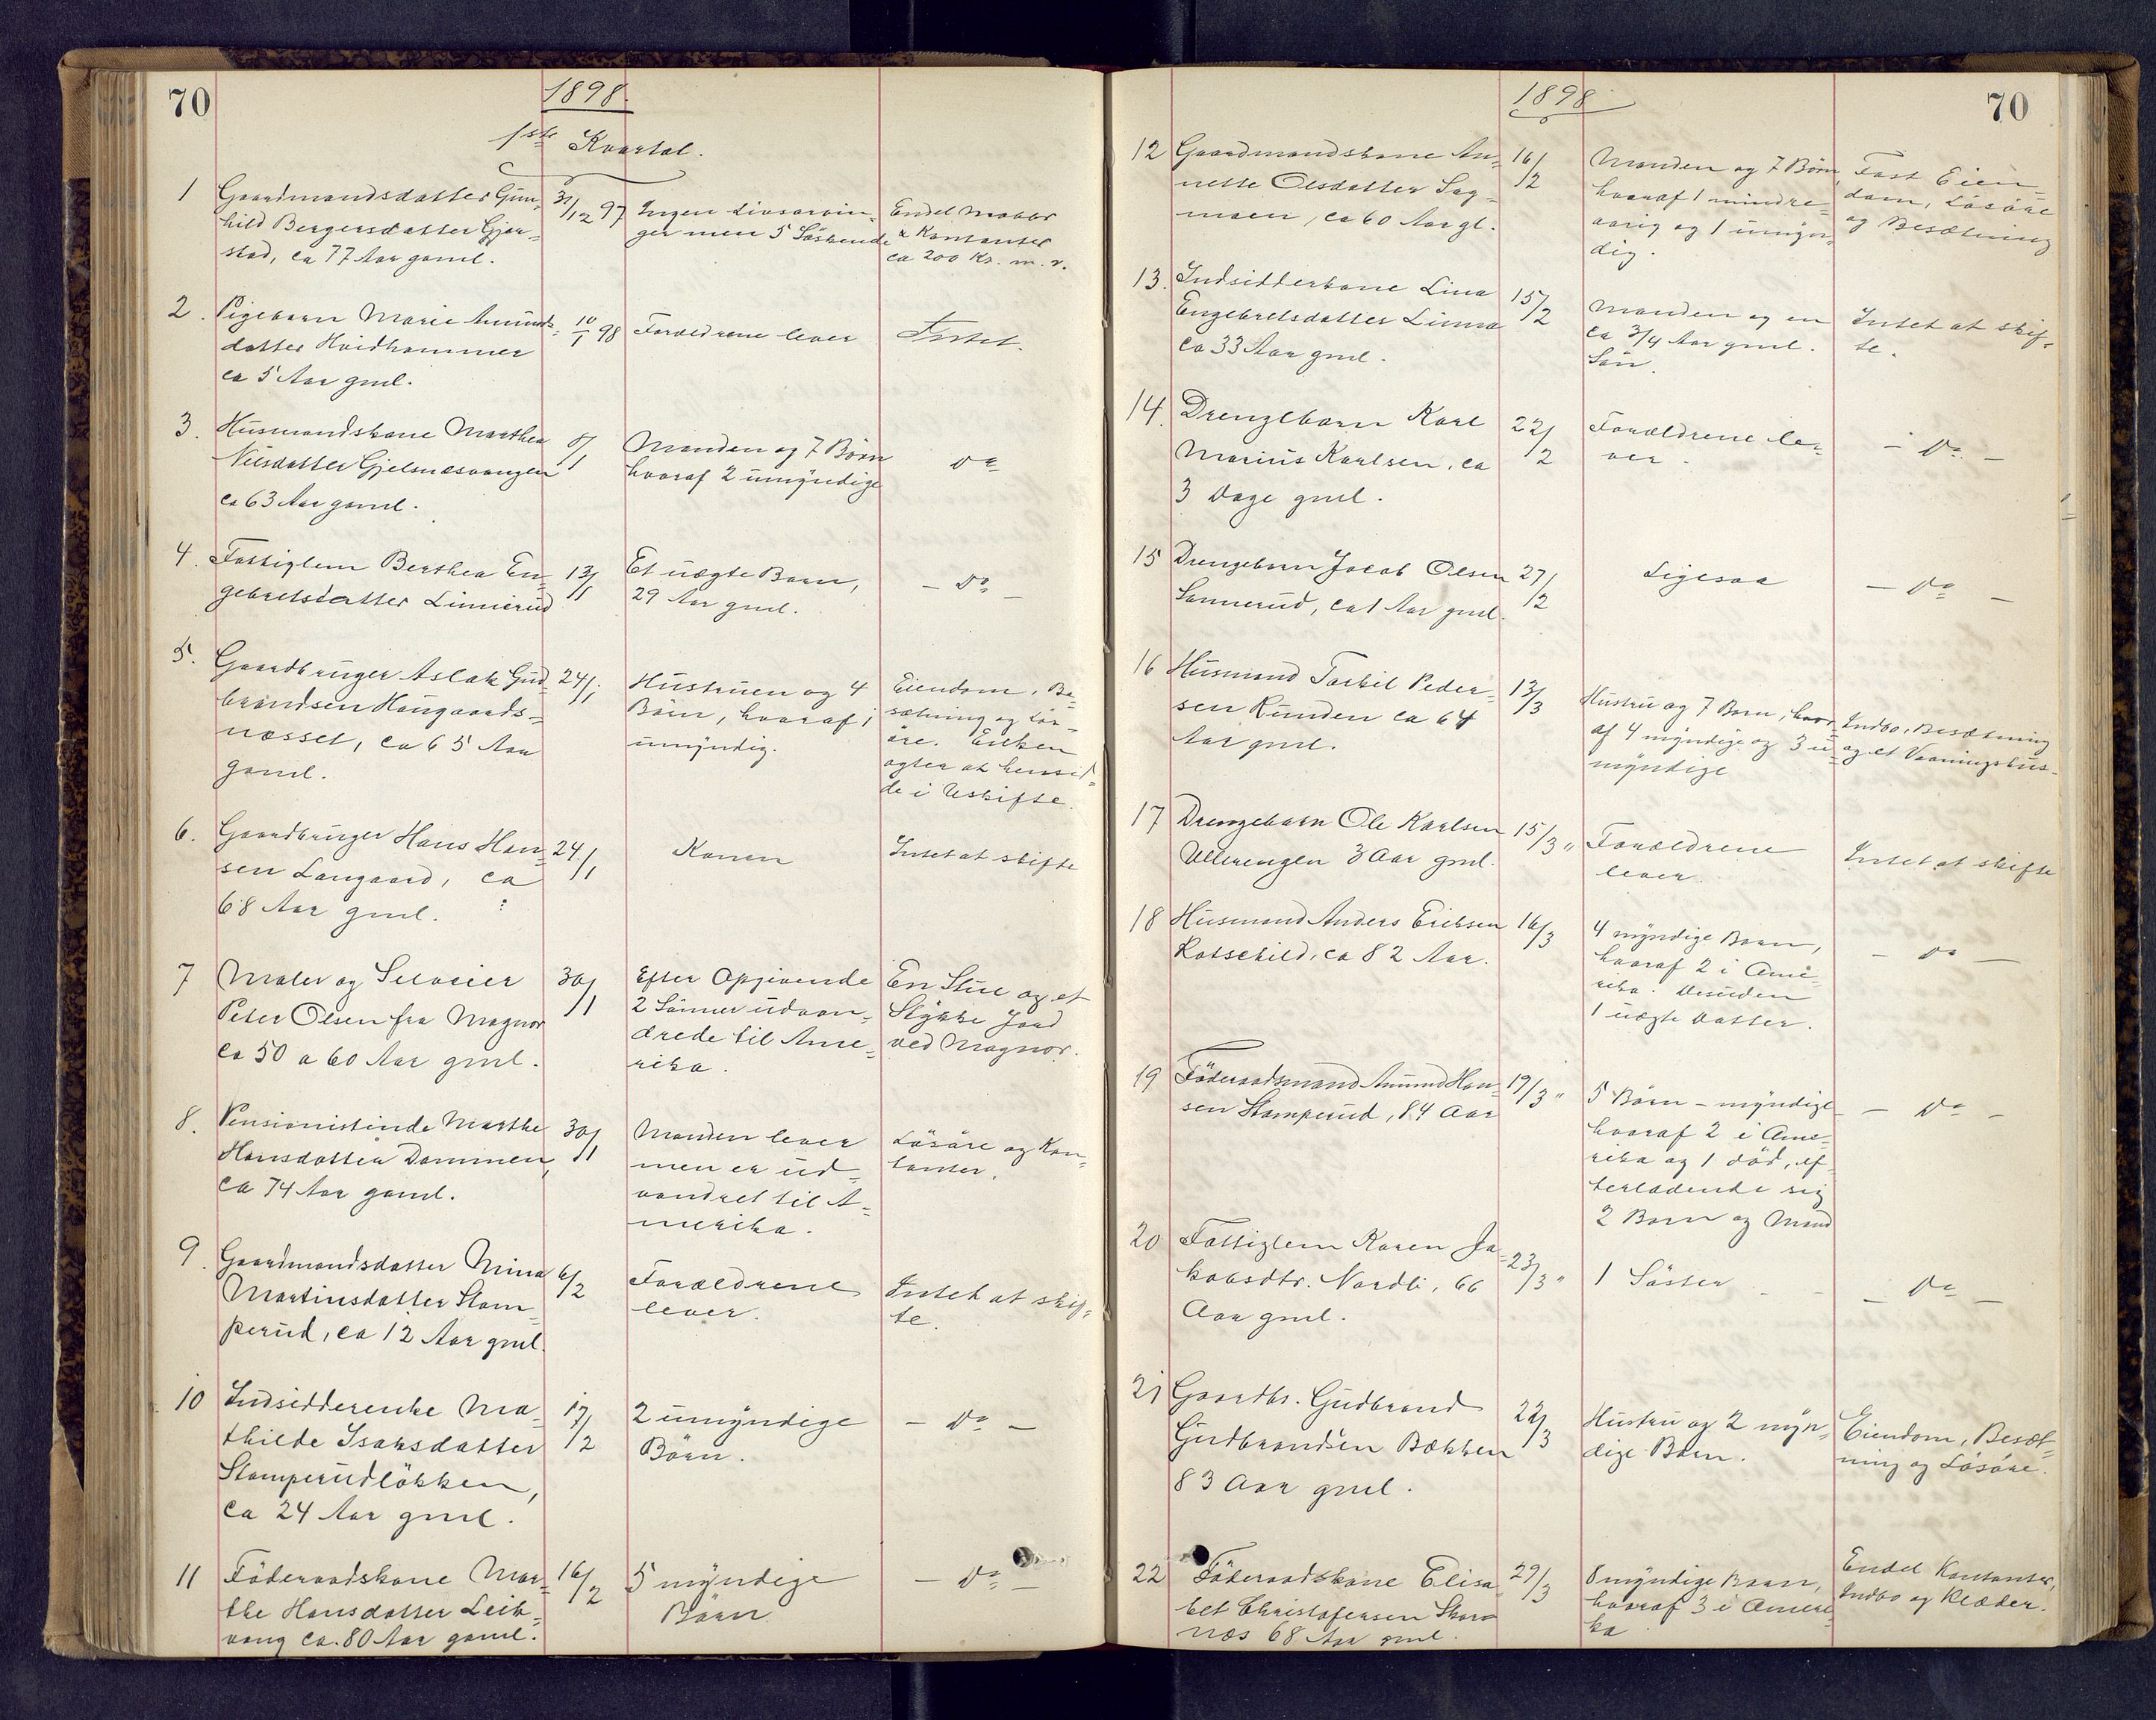 70
1898.
1ste Kvartal.
1 Gaardmandsdatter Gun-
hild Bergersdatter Gjer-
stad, ca 77 Aar gaml.
31/12 97
Ingen Livsarvin-
ger men 5 Söskende
Endel Møbler
& Kontanter
ca 200 Kr. m. v.
2. Pigebarn Marie Amunds-
datter Hvidhammer
ca 5 Aar gml.
10/1 98
Forældrene lever
Intet.
3. Husmandskone Marthea
Nilsdatter Gjelsnesvangen
ca 63 Aar gaml.
8/1
Manden og 7 Börn
hvoraf 2 umyndige
Do
4. Fattiglem Berthea En-
gebretsdatter Linnerud
13/1
Et uægte Barn,
29 Aar gml.
- Do -
5. Gaardbruger Aslak Gud-
brandsen Haugaards-
næsset, ca 65 Aar
gaml.
24/1
Hustruen og 4
Börn, hvoraf 1
umyndig.
Eiendom, Be-
sætning og Lös-
öre. Enken
agter at hensid-
de i Uskifte.
6. Gaardbruger Hans Han-
sen Langaard, ca
68 Aar gml.
24/1
Konen
Intet at skifte
7 Maler og Selveier
Peter Olsen fra Magnor
ca 50 a 60 Aar gml.
30/1
Efter Opgivende
2 Sönner udvan-
drede til Ame-
rika.
En Stue og et
Stykke Jord
ved Magnor.
8. Pensionistinde Marthe
Hansdatter Dammen,
ca 74 Aar gaml.
30/1
Manden lever
men er ud-
vandret til A-
merika.
Lösöre og Kon-
tanter.
9. Gaardmandsdatter Mina
Martinsdatter Stom-
perud, ca 12 Aar gml.
6/2
Forældrene
lever.
Intet at skif-
te.
10 Indsidderenke Ma-
thilde Isaksdatter
Stomperudlökken,
ca 24 Aar gml.
17/2
2 umyndige
Börn.
- Do -
11 Föderaadskone Mar-
the Hansdatter Leik-
vang ca. 80 Aar gaml.
16/2
5 myndige
Börn.
- Do -
1898
70
12 Gaardmandskone An-
nette Olsdatter Sag-
moen, ca 60 Aar gl.
16/2
Manden og 7 Börn,
hvoraf 1 mindre-
aarig og 1 umyn-
dig.
Fast Eien-
dom, Lösöre
og Besætning
13. Indsidderkone Lina
Engebretsdatter Linna
ca 33 Aar gml.
15/2
Manden og en
ca 3/4 Aar gml.
Sön.
Intet at skif-
te.
14. Drengebarn Karl
Marius Karlsen, ca
3 Dage gml.
22/2
Forældrene le-
ver.
- Do -
15 Drengebarn Jacob Olsen
Sannerud, ca 1 Aar gml.
27/2
Ligesaa
- Do -
16 Husmand Torkil Peder-
sen Runden ca 64
Aar gml.
13/3
Hustru og 7 Barn, hvor-
af 4 myndige og 3 u-
myndige
Indbo, Besætning
og et Vaaningshus.
17 Drengebarn Ole Karlsen
Ullerengen 3 Aar gml.
15/3 "
Forældrene
lever.
Intet at skifte
18 Husmand Anders Eriksen
Rotschild, ca 82 Aar.
16/3
4 myndige Barn,
hvoraf 2 i Ame-
rika. Desuden
1 uægte Datter.
- Do -
19 Föderaadsmand Amund Han-
sen Stomperud, 84 Aar
19/3 "
5 Börn - myndige
hvoraf 2 i Ame-
rika og 1 död, ef-
terladende sig
2 Barn og Mand
- Do -
20 Fattiglem Karen Ja-
kobsdtr. Nordli, 66
Aar gml.
23/3 "
1 Söster
- Do -
21 Gaardbr. Gudbrand
Gudbrandsen Bækken
83 Aar gml.
22/3
Hustru og 2 myn-
dige Barn.
Eiendom, Besæt-
ning og Lösöre.
22 Föderaadskone Elisa-
bet Christofersen Skar-
næs 68 Aar gml.
29/3
8 myndige Barn,
hvoraf 3 i Ameri-
ka
Endel Kontanter,
Indbo og Klæder.